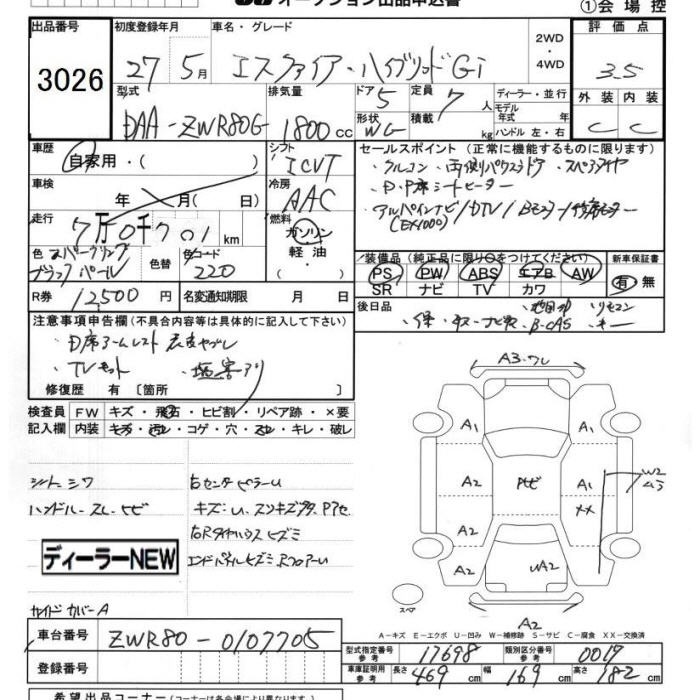 オークション出品申込書
①会場控
出品番号
3026
初度登録年月
27 5月
車名・グレード
エスクァイア・ハイブリッドGi
2WD
・
4WD
評価点
3.5
外装 内装
C C
型式
DAA-ZWR80G
排気量
1800cc
ドア 5
形状 WG
定員 7人
積載 kg
ディーラー・並行
モデル年式 年
ハンドル 左・右
車歴
自家用・( )
シフト
ICVT
車検
年 月( 日)
冷房
AAC
走行
7万0千701km
燃料
ガソリン
軽油
・
色 スパークリング
ブラックパール
色替
色コード
220
R券 12,500円
名変通知期限 月 日
セールスポイント (正常に機能するものに限ります)
・クルコン・両側パワスラドア・スペアタイヤ
・D・P席シートヒーター
・アルパインナビ/DTV/Bモニター/後席モニター
(EX1000)
装備品 (純正品に限り○をつけてください)
PS PW ABS エアB AW
SR ナビ TV カワ
新車保証書
有 無
後日品
・地図SD ・リモコン
・保・取・ナビ取・B-CAS・キー
注意事項申告欄 (不具合内容等は具体的に記入して下さい)
・D席アームレスト 表皮ヤブレ
・TVキット ・塩害アリ
修復歴 有 〔箇所 〕
検査員 FW キズ・飛石・ヒビ割・リペア跡・×要
記入欄 内装 キズ・汚レ・コゲ・穴・スレ・キレ・破レ
シート シワ
ハンドル・スレ・ケビ
右センタピラーU
ディーラーNEW
サイドカバーA
A3.ワレ
A1
A1
A2
A1
XX
W2
ムラ
A2
A2
UA2
スペア
A2
A-キズ E-エクボ U-凹み W-補修跡 S-サビ C-腐食 XX-交換済
車台番号
ZWR80-0107705
登録番号
型式指定番号 参考 17698
類別区分番号 参考 0017
車庫証明用 参考 長さ 469 幅 169 高さ 182 cm
希望出品コーナー